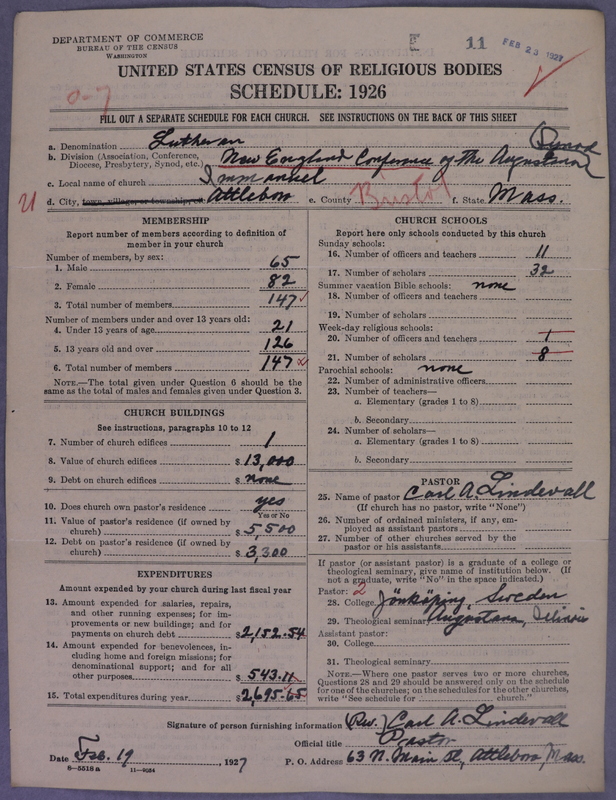 DEPARTMENT OF COMMERCE
BUREAU OF THE CENSUS
WASHINGTON
E 11 FEB 23 1927
UNITED STATES CENSUS OF RELIGIOUS BODIES
SCHEDULE: 1926
0-7
FILL OUT A SEPARATE SCHEDULE FOR EACH CHURCH. SEE INSTRUCTIONS ON THE BACK OF THIS SHEET
a. Denomination Lutheran
b. Division (Association, Conference, Diocese, Presbytery, Synod, etc.) New England Conference of the Augustana Synod
c. Local name of church Immanuel
21 d. City, town, village, or township, etc. Attleboro e. County Bristol f. State Mass.
MEMBERSHIP
Report number of members according to definition of
member in your church
Number of members, by sex:
1. Male 65
2. Female 82
3. Total number of members 147
Number of members under and over 13 years old:
4. Under 13 years of age 21
5. 13 years old and over 126
6. Total number of members 147
NOTE.—The total given under Question 6 should be the
same as the total of males and females given under Question 3.
CHURCH BUILDINGS
See instructions, paragraphs 10 to 12
7. Number of church edifices 1
8. Value of church edifices $ 13,000
9. Debt on church edifices $ none
10. Does church own pastor's residence yes
Yes or No
11. Value of pastor's residence (if owned by
church) $ 5,500
12. Debt on pastor's residence (if owned by
church) $ 3,300
EXPENDITURES
Amount expended by your church during last fiscal year
13. Amount expended for salaries, repairs,
and other running expenses; for im-
provements or new buildings; and for
payments on church debt $ 2,152.54
14. Amount expended for benevolences, in-
cluding home and foreign missions; for
denominational support; and for all
other purposes $ 543.11
15. Total expenditures during year $ 2,695.65
CHURCH SCHOOLS
Report here only schools conducted by this church
Sunday schools:
16. Number of officers and teachers 11
17. Number of scholars 32
Summer vacation Bible schools: none
18. Number of officers and teachers
19. Number of scholars
Week-day religious schools:
20. Number of officers and teachers 1
21. Number of scholars 8
Parochial schools: none
22. Number of administrative officers
23. Number of teachers—
a. Elementary (grades 1 to 8)
b. Secondary
24. Number of scholars—
a. Elementary (grades 1 to 8)
b. Secondary
PASTOR
25. Name of pastor Carl A. Lindevall
(If church has no pastor, write "None")
26. Number of ordained ministers, if any, em-
ployed as assistant pastors
27. Number of other churches served by the
pastor or his assistants
If pastor (or assistant pastor) is a graduate of a college or
theological seminary, give name of institution below. (If
not a graduate, write "No" in the space indicated.)
Pastor: 2
28. College Jönköping, Sweden
29. Theological seminary Augustana, Illinois
Assistant pastor:
30. College
31. Theological seminary
NOTE.—Where one pastor serves two or more churches,
Questions 28 and 29 should be answered only on the schedule
for one of the churches; on the schedules for the other churches,
write "See schedule for church."
Signature of person furnishing information (Rev.) Carl A. Lindevall
Official title Pastor
Date Feb. 19, 1927 P. O. Address 63 N. Main St., Attleboro, Mass.
8—5518 a 11—9054